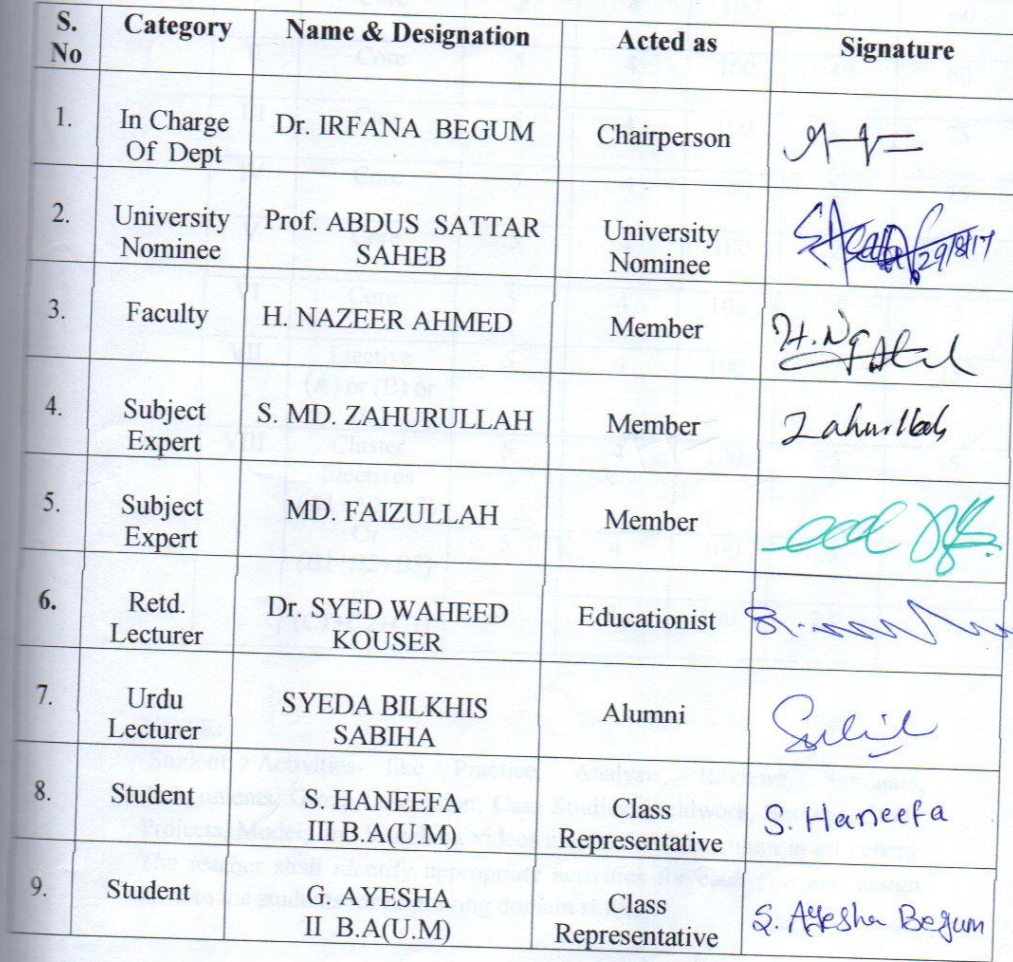 S. No Category Name & Designation Acted as Signature
1. In Charge Of Dept Dr. IRFANA BEGUM Chairperson
2. University Nominee Prof. ABDUS SATTAR SAHEB University Nominee 29/8/17
3. Faculty H. NAZEER AHMED Member
4. Subject Expert S. MD. ZAHURULLAH Member Zahurullah
5. Subject Expert MD. FAIZULLAH Member
6. Retd. Lecturer Dr. SYED WAHEED KOUSER Educationist
7. Urdu Lecturer SYEDA BILKHIS SABIHA Alumni
8. Student S. HANEEFA III B.A(U.M) Class Representative S. Haneefa
9. Student G. AYESHA II B.A(U.M) Class Representative S. Ayesha Begum